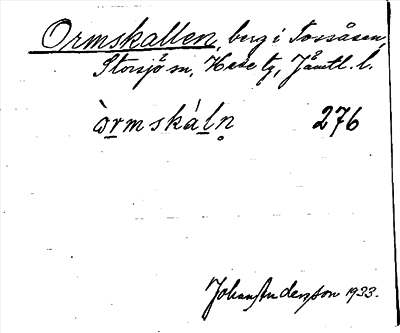 Ormskallen, berg i Torsåsen,
Storsjö sn, Hede tg, Jämtl. l.
òrmskáln̥ 276
Johan Anderzon 1933.